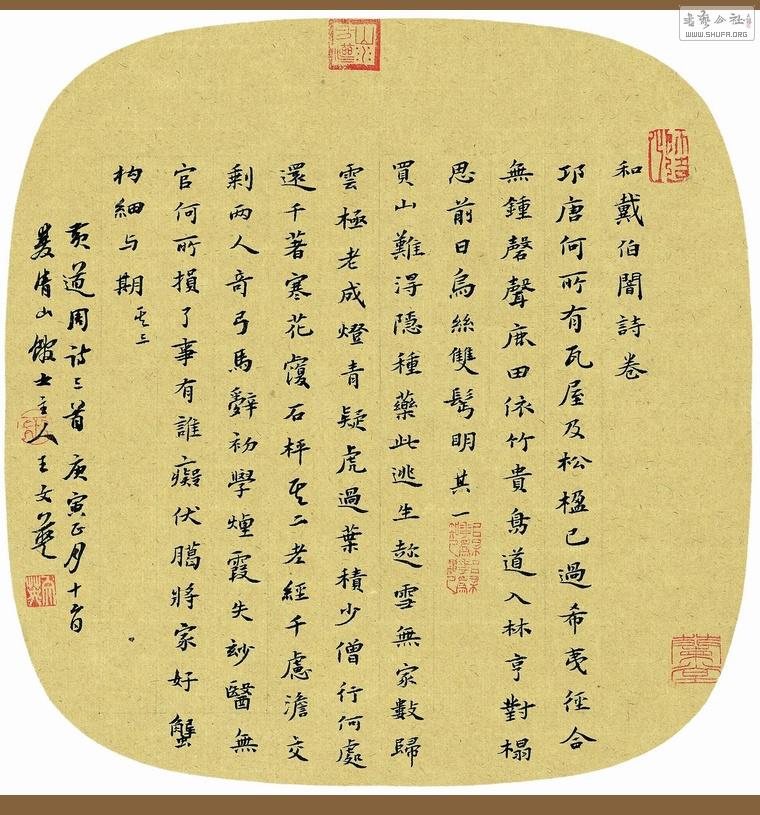 和戴伯闇詩卷
邛唐何所有瓦屋及松楹已過希夷徑合
無鍾磬聲鹿田依竹貴鳥道入林亨對榻
思前日烏絲雙髩明其一
買山難得隱種藥此逃生趁雪無家數歸
雲極老成燈青疑虎過葉積少僧行何處
還千著寒花覆石枰其二老經千慮澹交
剩兩人奇弓馬辭初學煙霞失玅醫無
官何所損了事有誰癡伏臈將家好蟹
杓細與期其三
黃道周詩三首庚寅正月十
清山館士主人王文英
書藝公社
WWW.SHUFA.ORG